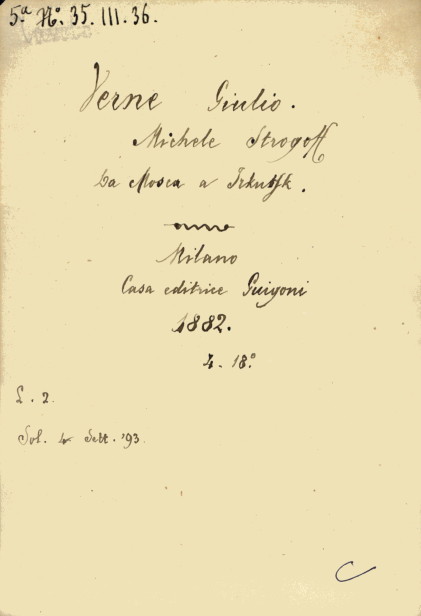 5ª Nº. 35. III. 36.
Verne Giulio.
Michele Strogoff
Da Mosca a Irkutsk.
Milano
Casa editrice Guigoni
1882.
4. 18º
L. 2.
Sol. 4 Sett. '93.
C